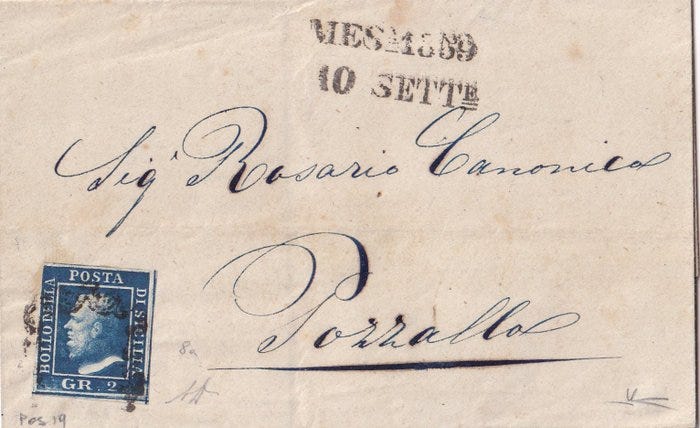 MESA 1859
10 SETTE
Sigr Rosario Canonico
Pozzallo
POSTA
BOLLO DELLA
DI SICILIA
GR. 2
8a
Pos 19